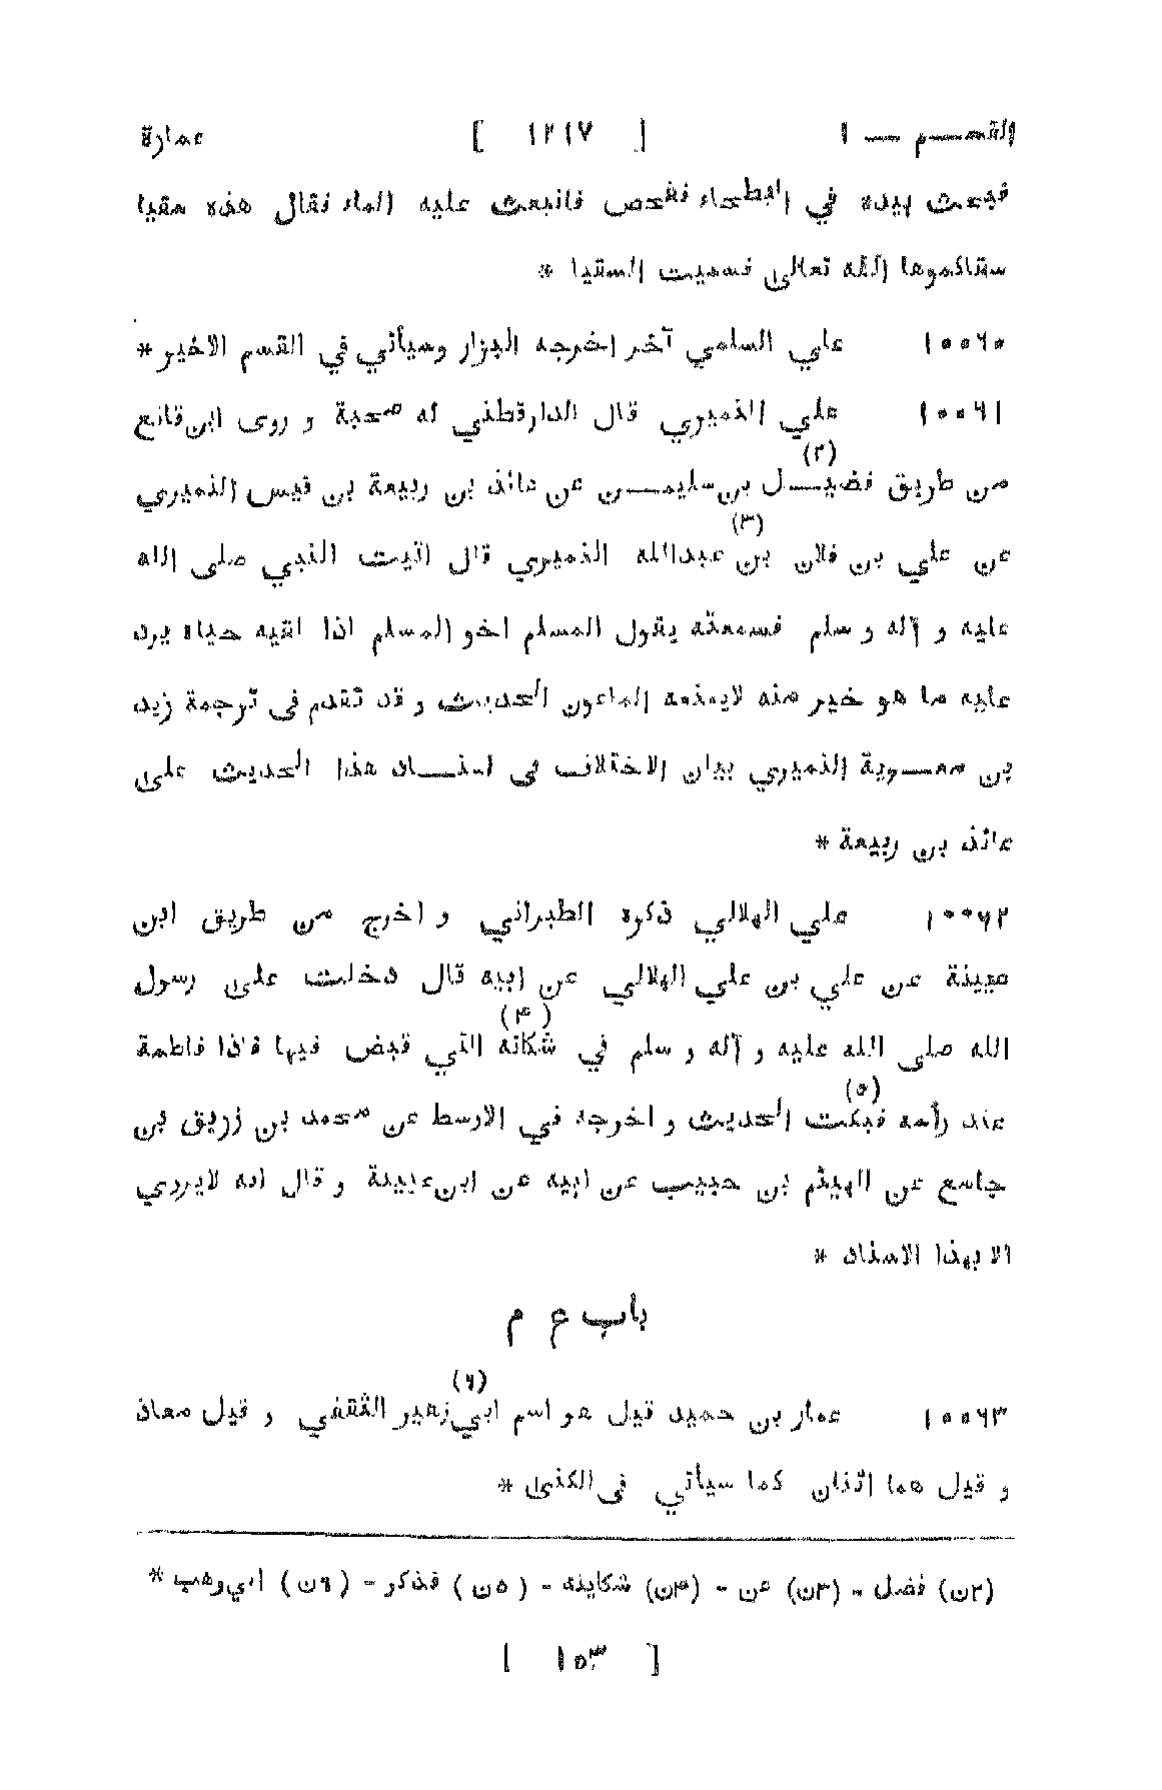 القســـم — ١ [ ١٢١٧ ] عمارة
فبحث بيده في البطحاء ففحص فانبعث عليه الماء فقال هذه سقيا
سقاكموها الله تعالى فسميت السقيا *
١٠٠٦٠ علي السلمي آخر اخرجه البزار وسيأتي في القسم الاخير *
١٠٠٦١ علي النميري قال الدارقطني له صحبة و روى ابن قانع
من طريق فضيـــل (٢) بن سليمـــن عن عائذ بن ربيعة بن قيس النميري
عن علي بن فلان بن (٣) عبدالله النميري قال اتيت النبي صلى الله
عليه و آله و سلم فسمعته يقول المسلم اخو المسلم اذا لقيه حياه يرد
عليه ما هو خير منه لايمنعه الماعون الحديث و قد تقدم فى ترجمة زيد
بن معـــوية النميري بيان الاختلاف فى اسنـــاد هذا الحديث على
عائذ بن ربيعة *
١٠٠٦٢ علي الهلالي ذكره الطبراني و اخرج من طريق ابن
عيينة عن علي بن علي الهلالي عن ابيه قال دخلت على رسول
الله صلى الله عليه و آله و سلم في شكاته (۴) التي قبض فيها فاذا فاطمة
عند رأسه فبكت (٥) الحديث و اخرجه في الاوسط عن محمد بن زريق بن
جامع عن الهيثم بن حبيب عن ابيه عن ابن عيينة و قال انه لايروي
الا بهذا الاسناد *
باب ع م
١٠٠٦٣ عمار بن حميد قيل هو اسم ابي زهير (٦) الثقفي و قيل معاذ
و قيل هما اثنان كما سيأتي فى الكنى *
(٢ن) فضل - (٣ن) عن - (۴ن) شكايته - (٥ن) فذكر - (٦ن) ابي وهب *
[ ١٥٣ ]